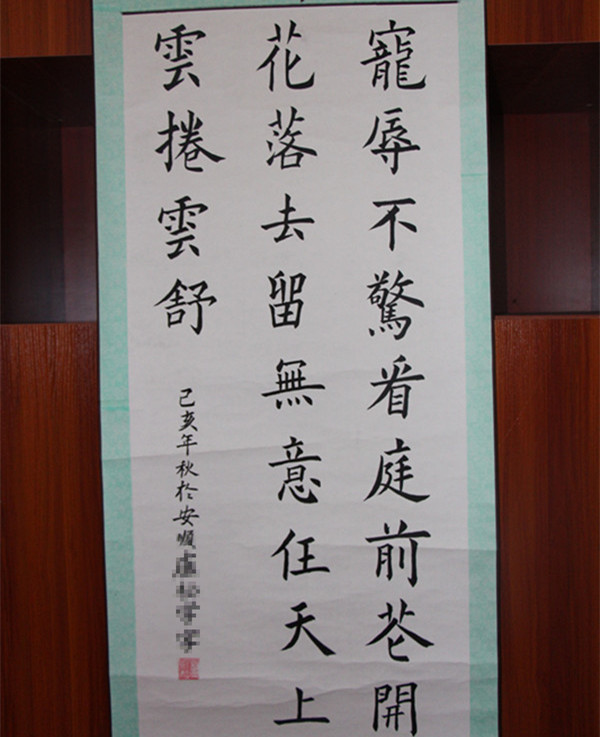 寵辱不驚看庭前芲開
花落去留無意任天上
雲捲雲舒
己亥年秋於安順